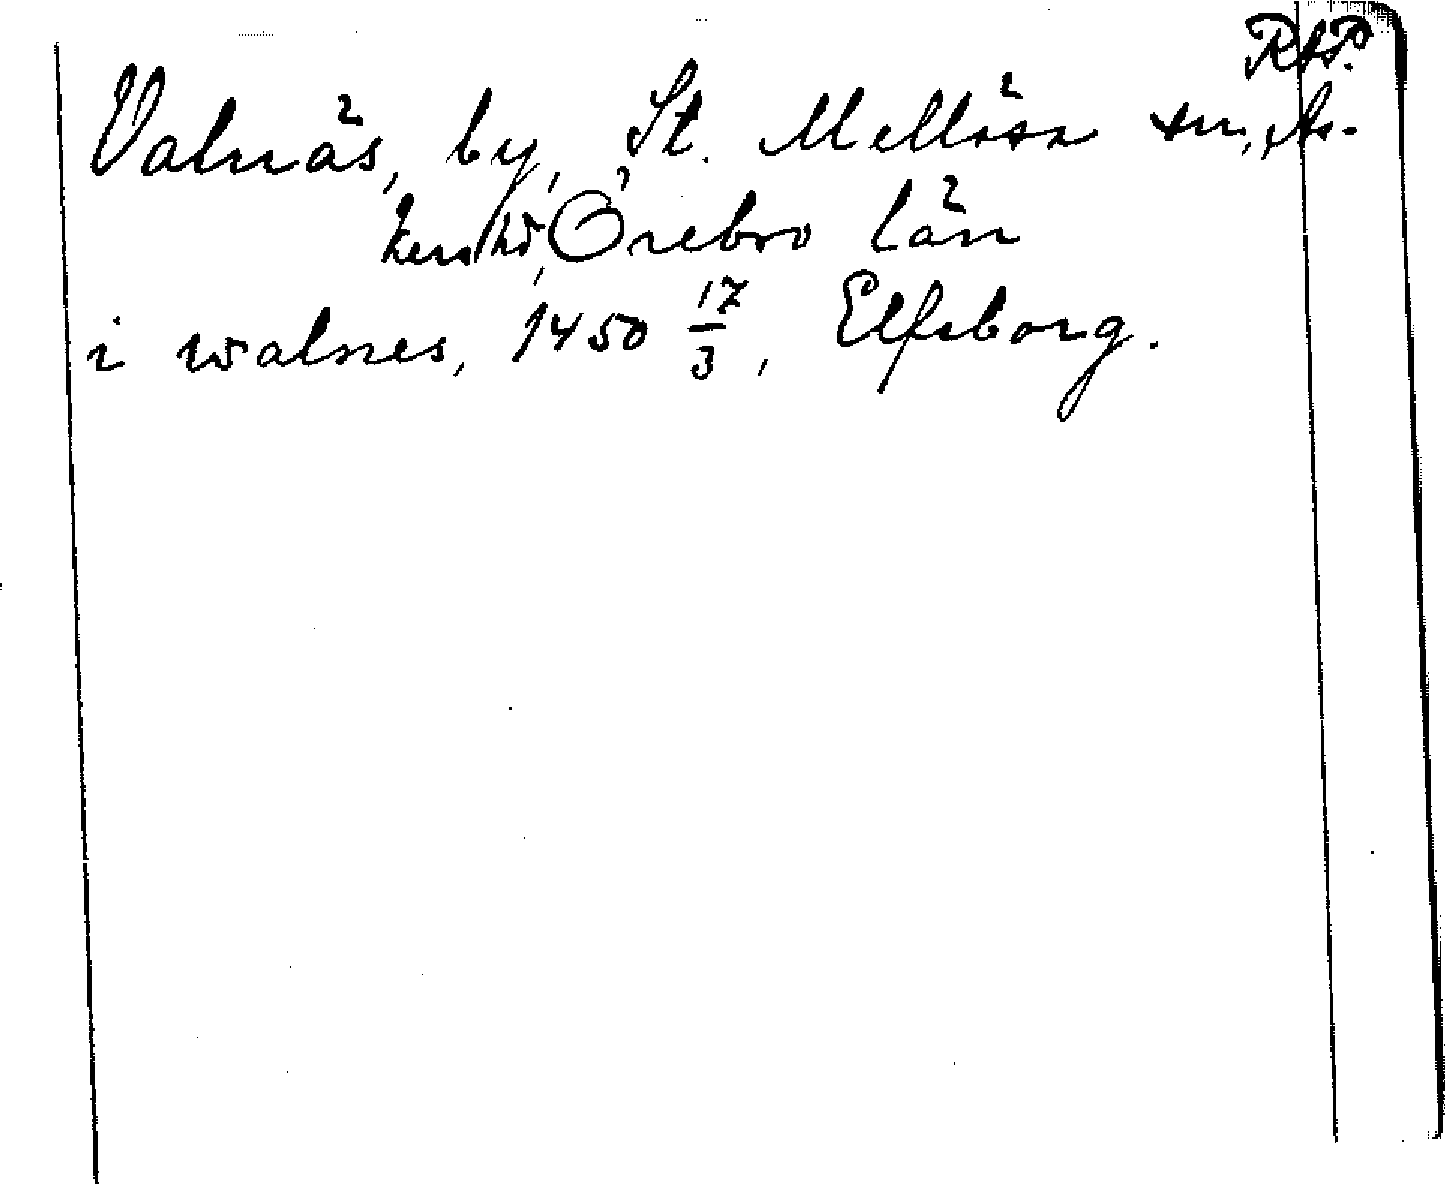 RAP.
Valnäs, by, St. Mellösa sn, As-
kers hd, Örebro län
i walnes, 1450 17/3, Elfsborg.